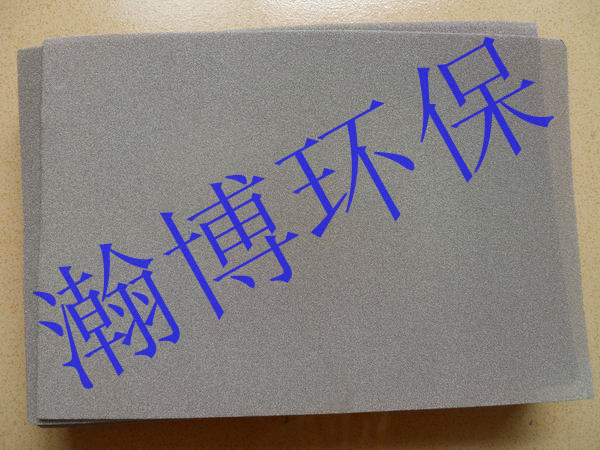 瀚博环保